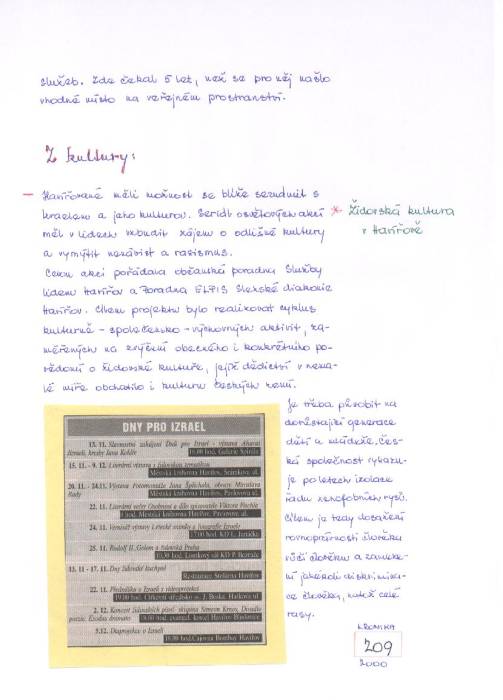 služeb. Zde čekal 5 let, než se pro něj našlo
vhodné místo na veřejném prostranství.
Z kultury:
- Havířované měli možnost se blíže seznámit s
Izraelem a jeho kulturou. Seriál osvětových akcí
měl v lidech vzbudit zájem o odlišné kultury
a vymýtit nenávist a rasismus.
* Židovská kultura
v Havířově
Celou akci pořádala občanská poradna Služby
lidem Havířov a Poradna ELPIS Slezské diakonie
Havířov. Cílem projektu bylo realizovat cyklus
kulturně - společensko - výchovných aktivit, za-
měřených na zvýšení obecného i konkrétního po-
vědomí o židovské kultuře, jejíž dědictví v nema-
lé míře obohatilo i kulturu českých zemí.
Je třeba působit na
dorůstající generace
dětí a mládeže. Čes-
ká společnost vykazu-
je po letech izolace
řadu xenofobních rysů.
Cílem je tedy dosažení
rovnoprávnosti člověka
vůči člověku a zameze-
ní jakékoli diskrimina-
ce člověka, natož celé
rasy.
DNY PRO IZRAEL
13. 11. Slavnostní zahájení Dnů pro Izrael - výstava
Izraeli, kresby Jana Koláře
18.00 hod. Galerie Spirála
15. 11. - 9. 12. Literární výstava s židovskou tematikou
Městská knihovna Havířov, Šrámkova ul.
20. 11. - 24.11. Výstava Fotomontáže Jana Šplíchala, obrazy Miroslava
Rady
Městská knihovna Havířov, Pavlovova ul.
22. 11. Literární večer Osobnost a dílo spisovatele Viktora Fischla
hod. Městská knihovna Havířov, Pavlovova ul.
24. 11. Vernisáž výstavy Letecké snímky a fotografie Izraele
17.00 hod. KD L. Janáčka
25. 11. Rudolf II., Golem a židovská Praha
hod. Loutkový sál KD P. Bezruče
13. 11. - 17. 11. Dny židovské kuchyně
Restaurace Stelaria Havířov
22. 11. Přednáška o Izraeli s videoprojekcí
19.00 hod. Církevní středisko sv. J. Boska, Haškova ul.
2. 12. Koncert židovských písní - skupina Simeon Krno, Divadlo
poezie, Exodus dramato
hod. evangel. kostel Havířov Bludovice
5.12. Diaprojekce o Izraeli
hod. Čajovna Bombay Havířov
KRONIKA
209
2000